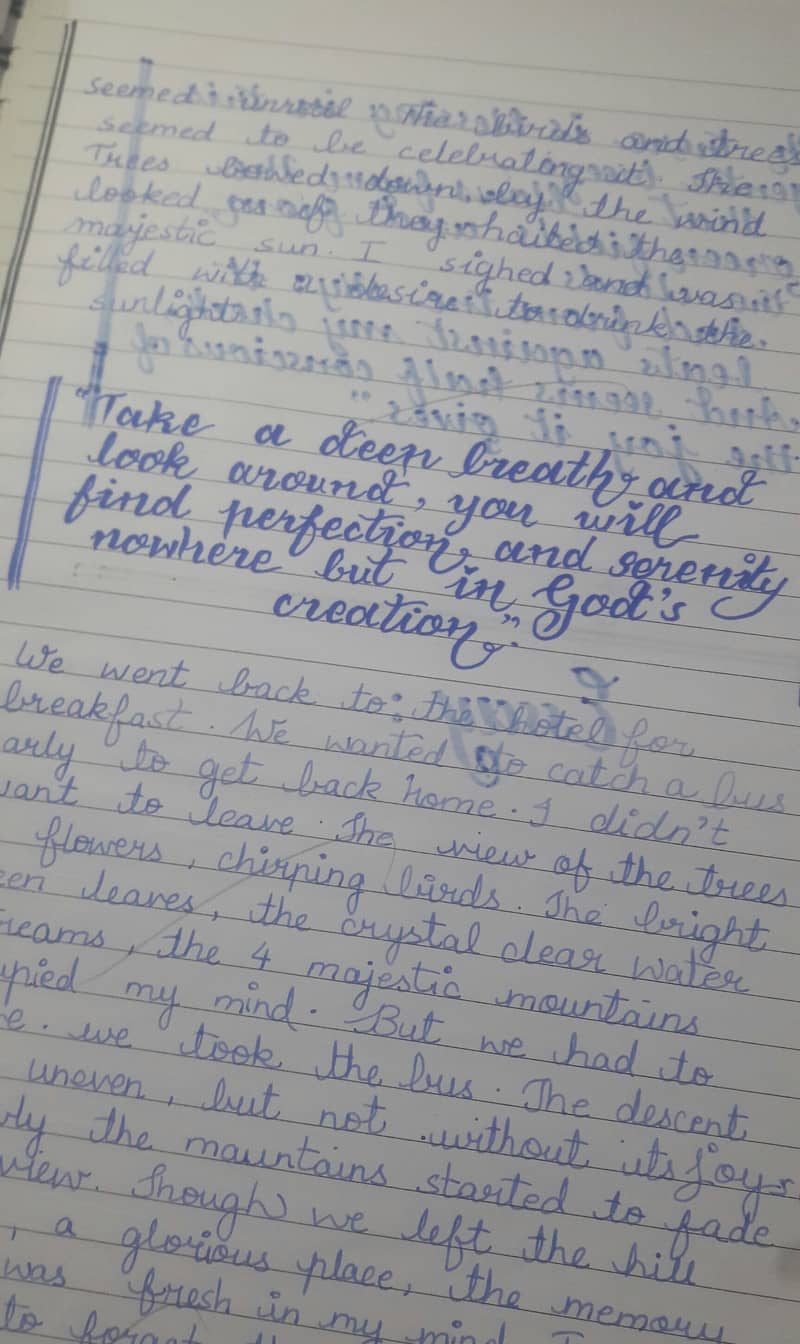 seemed unreal. The birds and trees
seemed to be celebrating it. The
Trees looked down, slay the wind
looked as if they hailed the
majestic sun. I sighed and was
filled with a desire to drink the
sunlight
"Take a deep breath, and
look around, you will
find perfection, and serenity
nowhere but in God's
creation".
We went back to the hotel for
breakfast. We wanted to catch a bus
arly to get back home. I didn't
want to leave. The view of the trees
flowers, chirping birds. The bright
een leaves, the crystal clear water
reams, the 4 majestic mountains
upied my mind. But we had to
e. we took the bus. The descent
uneven, but not without its joys
ly the mountains started to fade
view. Though we left the hill
, a glorious place, the memory
was fresh in my mind
to forget